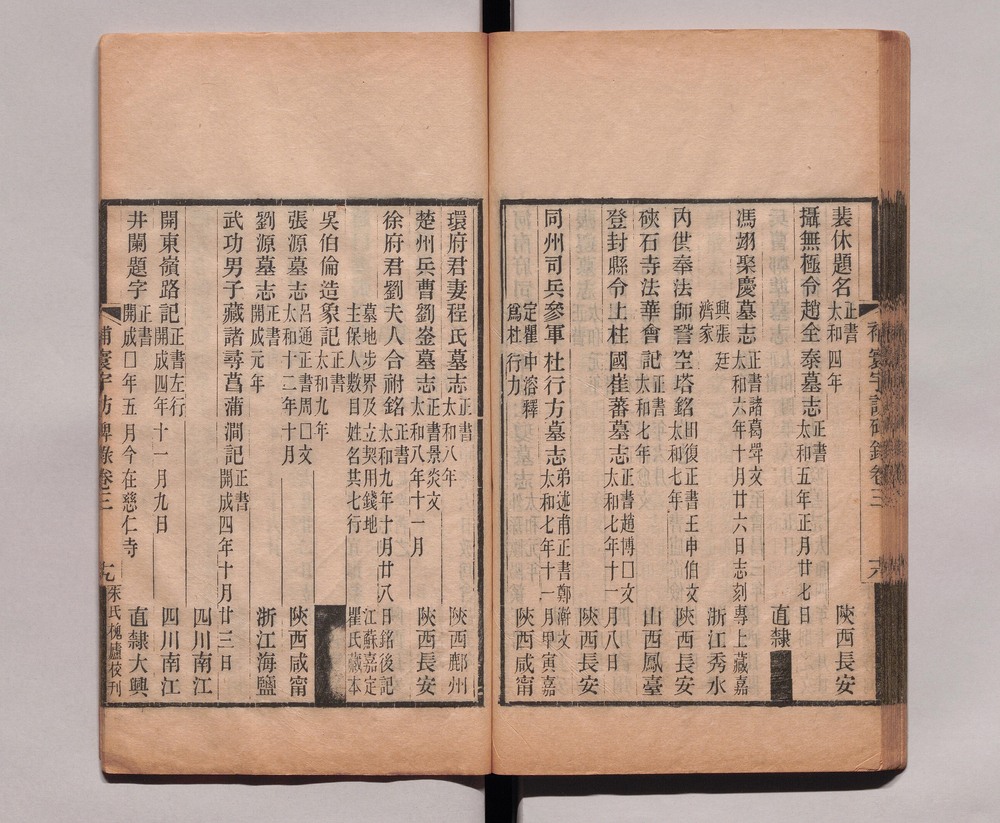 裴休題名 正書 太和四年 陝西長安
攝無極令趙全泰墓志 正書 太和五年正月廿七日 直隸
馮翊聚慶墓志 正書諸葛㽦文 太和六年十月廿六日志刻專上藏嘉
興張廷 濟家 浙江秀水
內供奉法師謷空塔銘 田復正書王申伯文 太和七年 陝西長安
硤石寺法華會記 正書 太和七年 山西鳳臺
登封縣令上柱國崔蕃墓志 正書趙博囗文 太和七年十一月八日 陝西長安
同州司兵參軍杜行方墓志 弟述甫正書鄭澣文 太和七年十一月甲寅嘉
定瞿中溶釋 爲杜行力 陝西咸甯
補寰宇訪碑錄卷三
環府君妻程氏墓志 正書 太和八年 陝西鄜州
楚州兵曹劉崟墓志 正書景炎文 太和八年十一月 陝西長安
徐府君劉夫人合祔銘 正書 太和九年十月廿八日銘後記
墓地步界及立契用錢地 主保人數目姓名其七行 江蘇嘉定 瞿氏藏本
吳伯倫造象記 正書 太和九年
張源墓志 呂通正書周囗文 太和十二年十月 陝西咸甯
劉源墓志 正書 開成元年 浙江海鹽
武功男子藏諸尋菖蒲澗記 正書 開成四年十月廿三日
四川南江
開東嶺路記 正書左行 開成四年十一月九日 四川南江
井闌題字 正書 開成囗年五月今在慈仁寺 直隸大興
補寰宇訪碑錄卷三 朱氏槐廬校刊